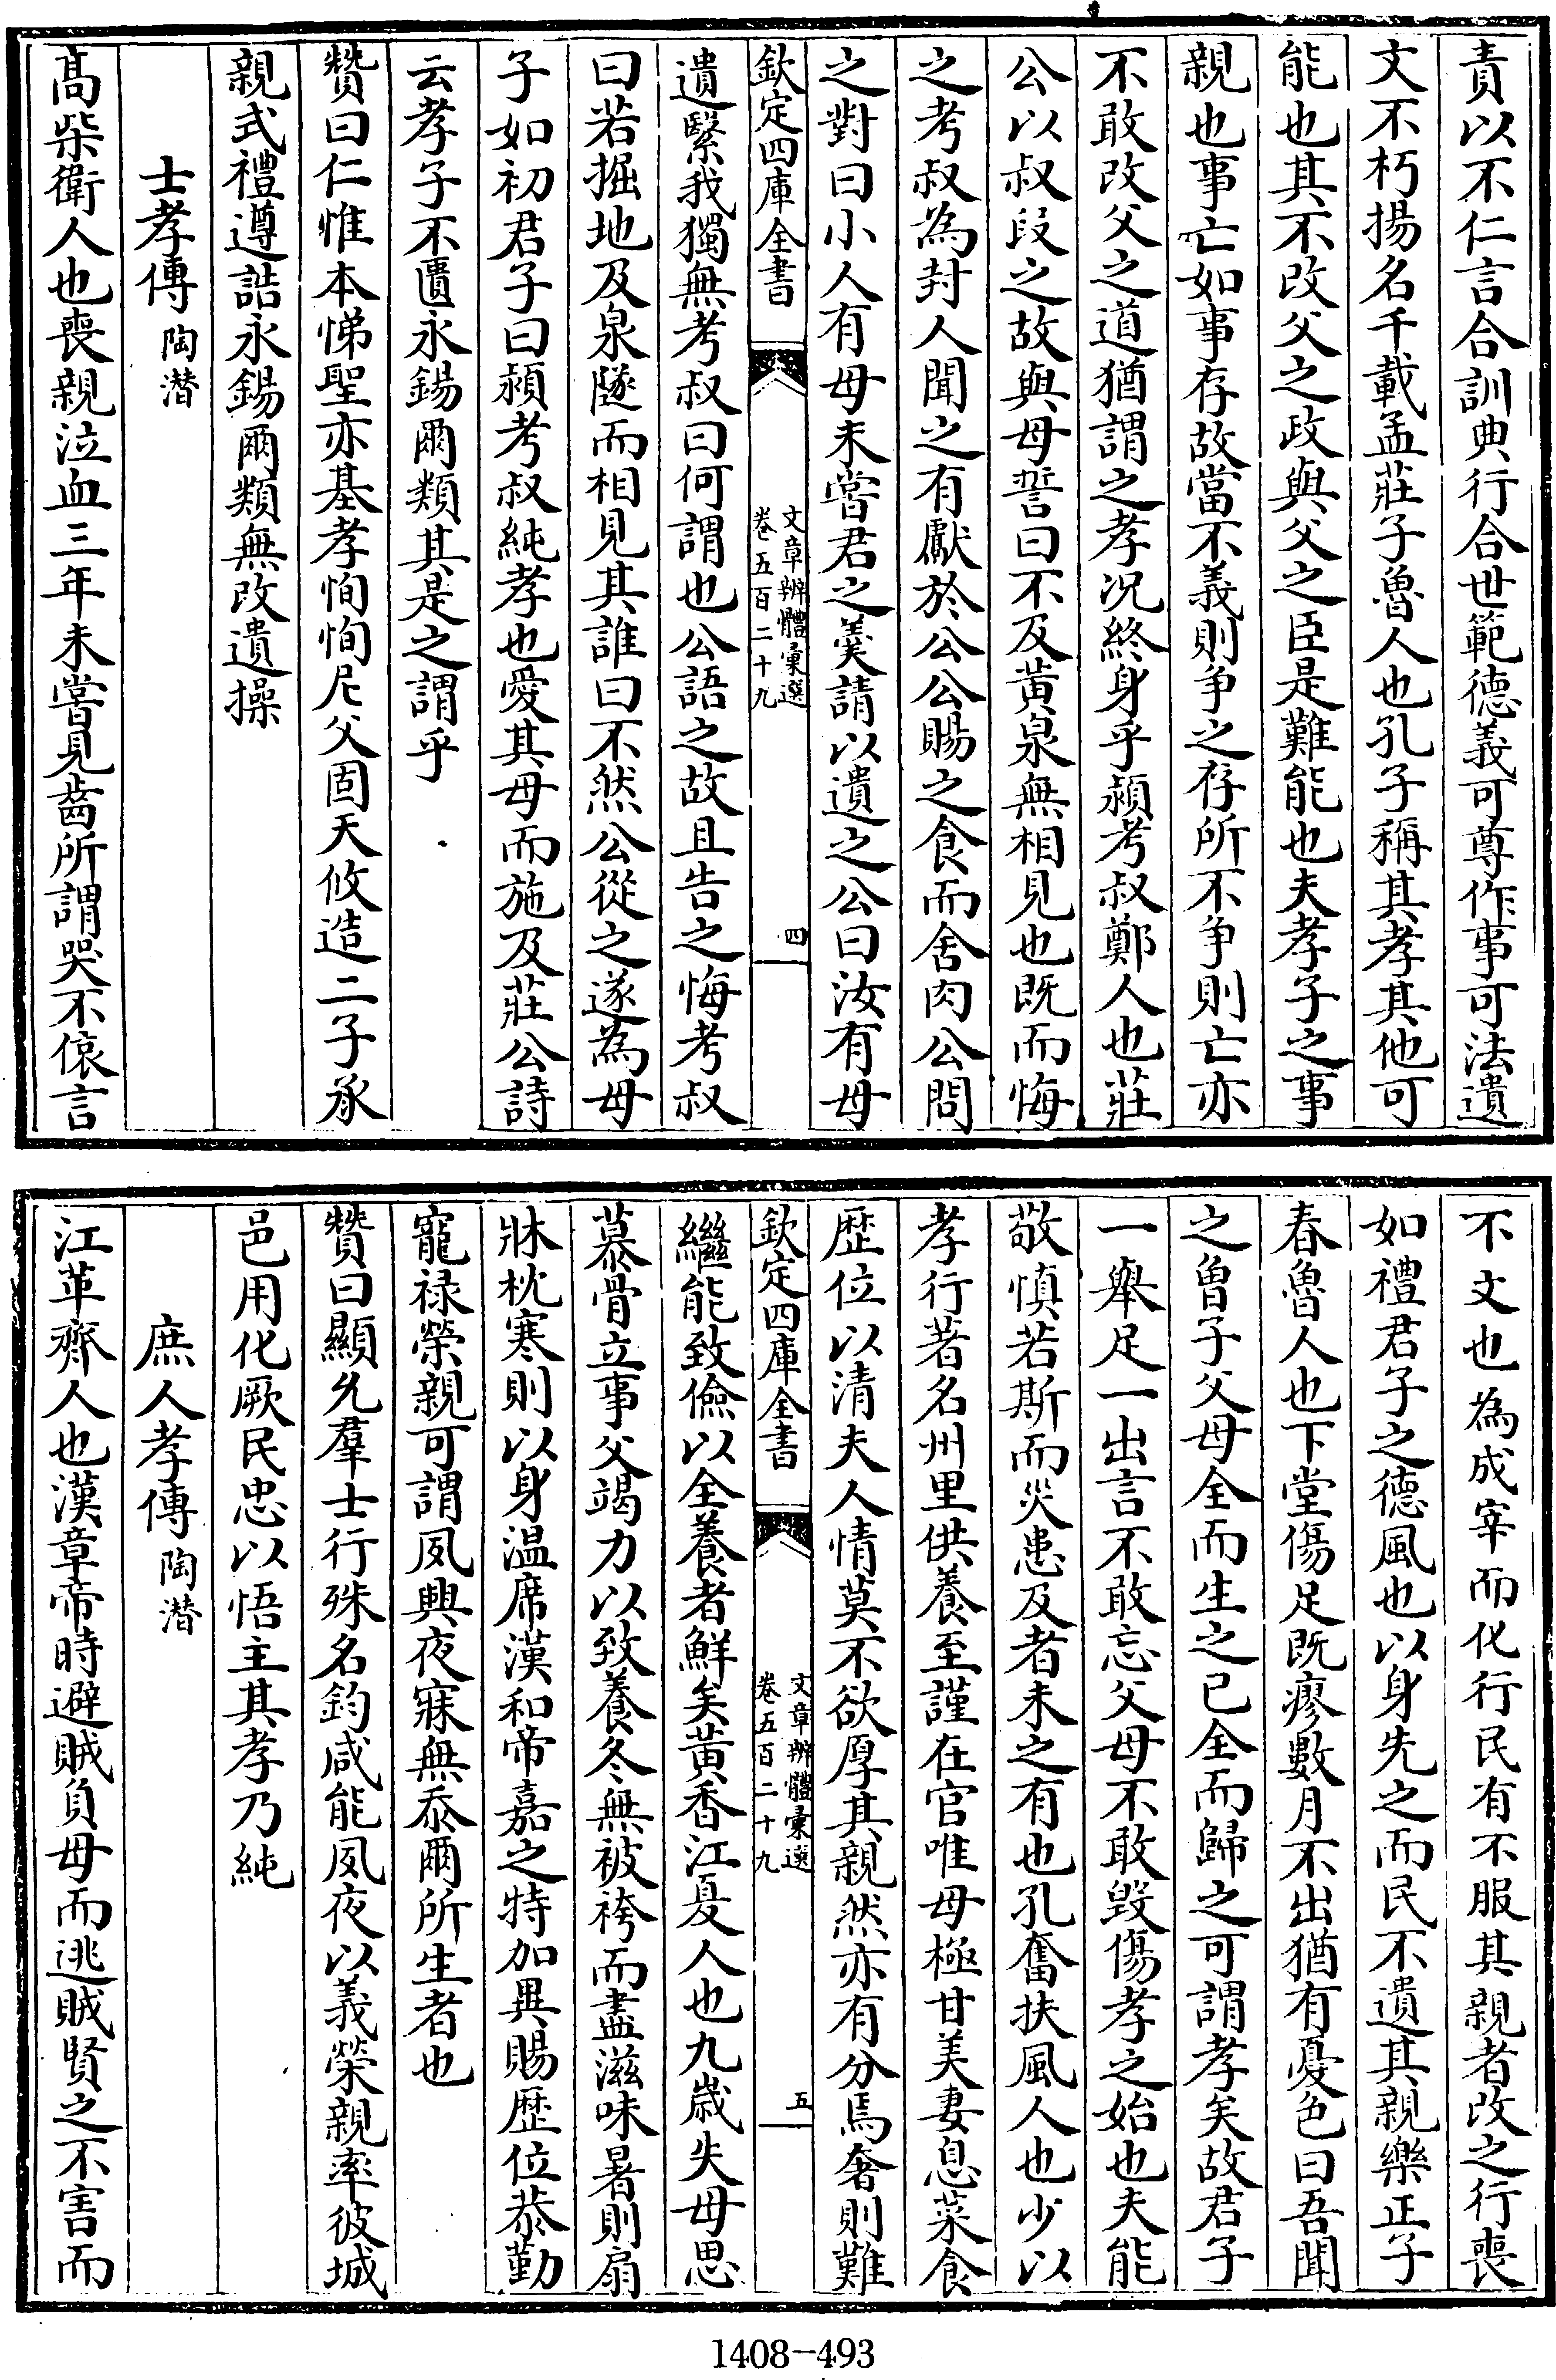 責以不仁言合訓典行合世範德義可尊作事可法遺
文不朽揚名千載孟莊子魯人也孔子稱其孝其他可
能也其不改父之政與父之臣是難能也夫孝子之事
親也事亡如事存故當不義則争之存所不争則亡亦
不敢改父之道猶謂之孝况終身乎潁考叔鄭人也莊
公以叔段之故與母誓曰不及黃泉無相見也既而悔
之考叔為封人聞之有獻於公公賜之食而舍肉公問
之對曰小人有母未嘗君之羮請以遺之公曰汝有母
欽定四庫全書
文章辨體彚選
卷五百二十九
四
遺繄我獨無考叔曰何謂也公語之故且告之悔考叔
曰若掘地及泉隧而相見其誰曰不然公從之遂為母
子如初君子曰潁考叔純孝也愛其母而施及莊公詩
云孝子不匱永錫爾類其是之謂乎
贊曰仁惟本悌聖亦基孝恂恂尼父固天攸造二子承
親式禮遵誥永錫爾類無改遺操
士孝傳 陶潛
髙柴衛人也喪親泣血三年未嘗見齒所謂哭不偯言
不文也為成宰而化行民有不服其親者改之行喪
如禮君子之德風也以身先之而民不遺其親樂正子
春魯人也下堂傷足既瘳數月不出猶有憂色曰吾聞
之曽子父母全而生之已全而歸之可謂孝矣故君子
一舉足一出言不敢忘父母不敢毀傷孝之始也夫能
敬慎若斯而災患及者未之有也孔奮扶風人也少以
孝行著名州里供養至謹在官唯母極甘美妻息菜食
歴位以清夫人情莫不欲厚其親然亦有分焉奢則難
欽定四庫全書
文章辨體彚選
卷五百二十九
五
繼能致儉以全養者鮮矣黄香江夏人也九歲失母思
慕骨立事父竭力以致養冬無被袴而盡滋味暑則扇
牀枕寒則以身温席漢和帝嘉之特加異賜歴位恭勤
寵禄榮親可謂夙興夜寐無忝爾所生者也
贊曰顯允羣士行殊名鈞咸能夙夜以義榮親率彼城
邑用化厥民忠以悟主其孝乃純
庶人孝傳 陶潛
江革齊人也漢章帝時避賊負母而逃賊賢之不害而
1408-493